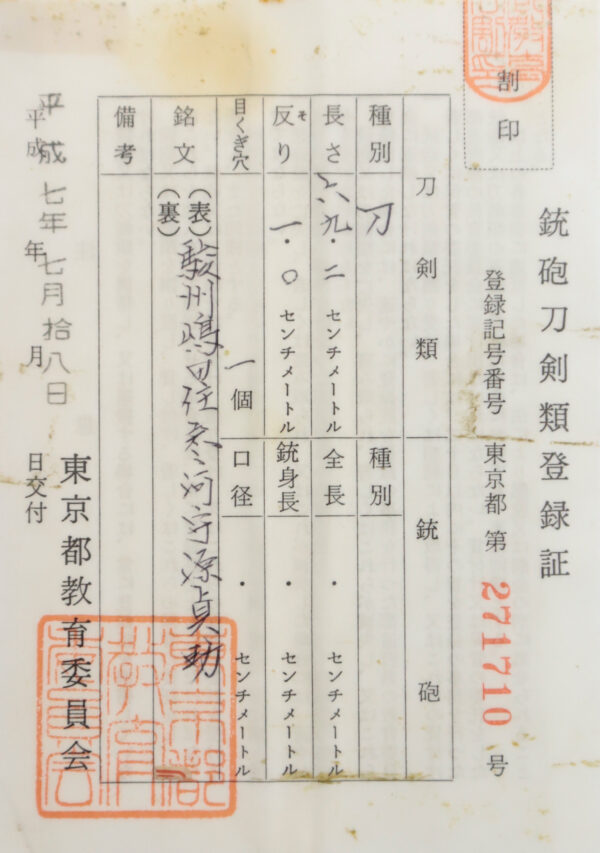 割印
銃砲刀剣類登録証
登録記号番号 東京都 第 271710 号
刀剣類
銃砲
種別 刀
種別
長さ 六九・二 センチメートル
全長 ・ センチメートル
反り そ 一・〇 センチメートル
銃身長 ・ センチメートル
目くぎ穴 一個
口径 ・ センチメートル
銘文 (表) 駿州嶋田住 河守源貞助
(裏)
備考
平成七年七月拾八日
平成 年 月 日交付
東京都教育委員会
東京都教育委員会